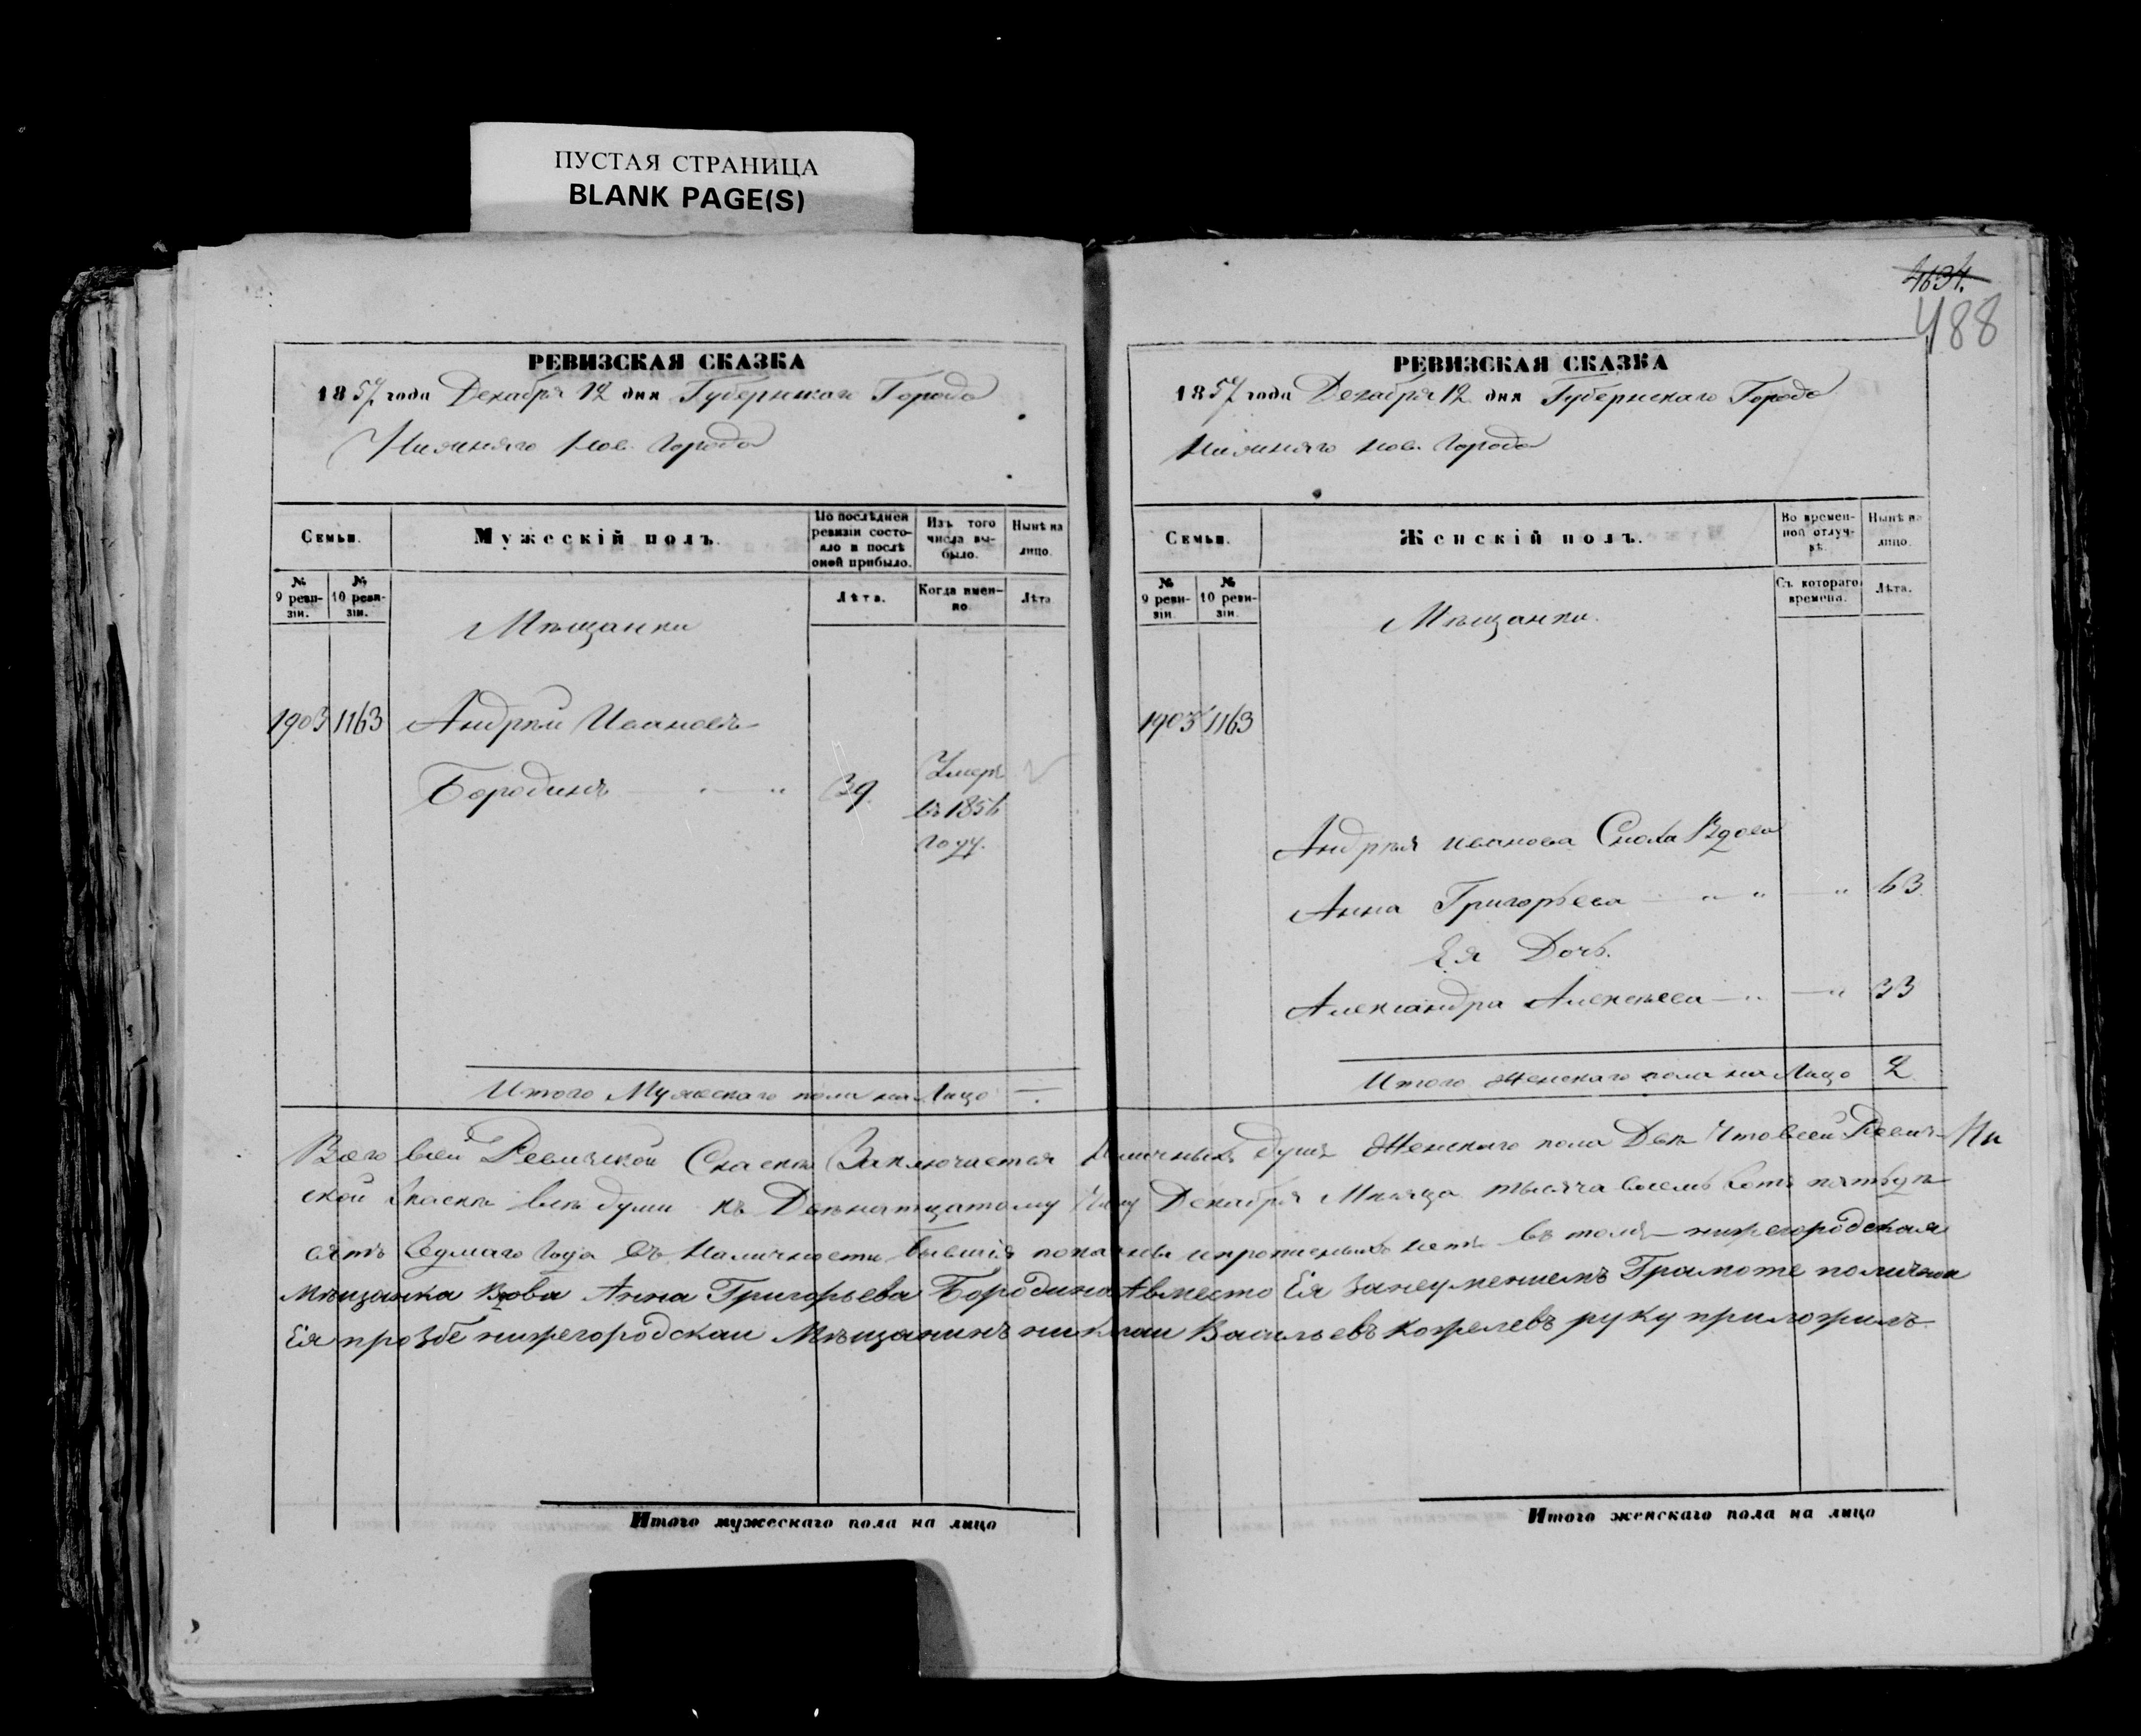 ПУСТАЯ СТРАНИЦА
BLANK PAGE(S)
4634.
488
РЕВИЗСКАЯ СКАЗКА
1857 года Декабря 12 дня Губернскаго Города
Нижняго Нов. Города
Семьи.
Мужескій полъ.
По послѣдней ревизіи состояло и послѣ оной прибыло.
Изъ того числа выбыло.
Нынѣ на лицо.
№ 9 ревизіи.
№ 10 ревизіи.
Лѣта.
Когда именно
Лѣта
Мѣщанки
1903 1163 Андрѣй Ивановъ
Бородинъ 39 Умеръ
въ 1856
году.
Итого Мужескаго пола на Лицо —
РЕВИЗСКАЯ СКАЗКА
1857 года Декабря 12 дня Губернскаго Города
Нижняго Нов. Города
Семьи.
Женскій полъ.
Во временной отлучкѣ.
Нынѣ на лицо.
№ 9 ревизіи.
№ 10 ревизіи.
Съ котораго времени.
Лѣта.
Мѣщанки.
1903 1163
Андрѣя Иванова Сноха Вдова
Анна Григорьева 63
Ея Дочь.
Александра Алексѣева 33
Итого Женскаго пола на Лицо 2
Всего всей Ревизской Скаскѣ Заключается Наличныхъ душъ Женскаго пола Двѣ Что всей Ревиз-
ской Скаскѣ всѣ души къ Двѣнатцатому Числу Декабря Мѣсяца тысяча восемь сотъ пятьде
сятъ Седмаго Года Въ Наличности бывшія показаны и прописныхъ нетъ въ томъ нижегородская
Мѣщанка вдова Анна Григорьева Бородина Авместо Ея Занеумениемъ Грамоте поличной
Ея прозбе нижегородскаи Мѣщанинъ николаи Васильевъ Кожелевъ руку приложилъ.
Итого мужескаго пола на лицо
Итого женскаго пола на лицо